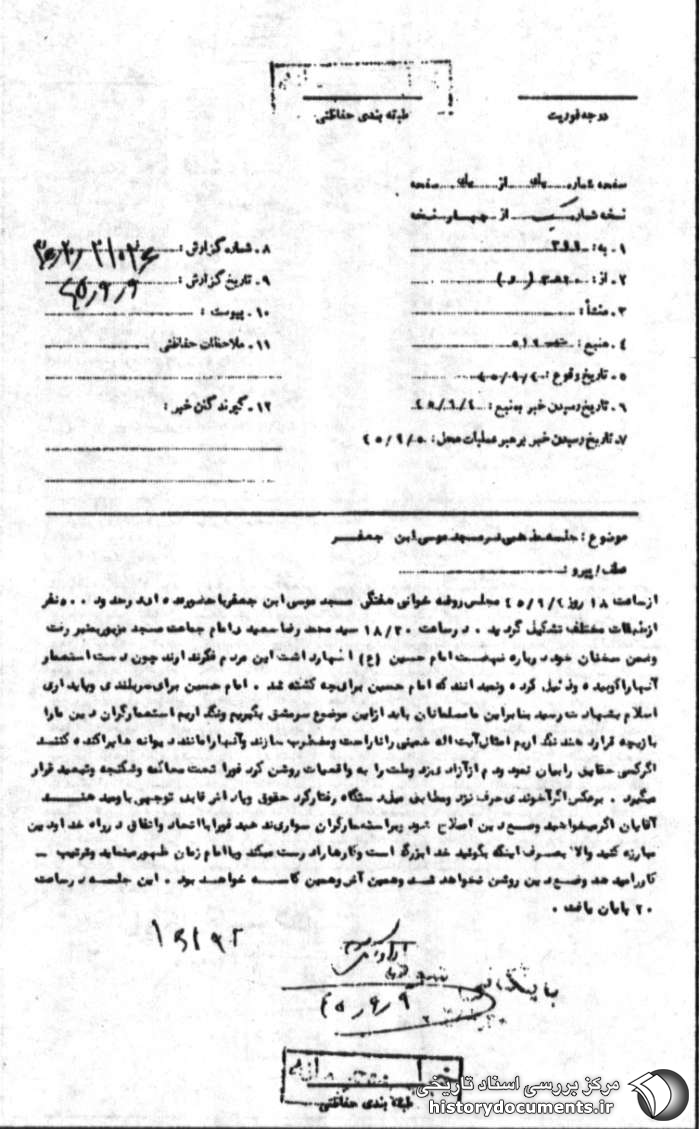 طبقه بندی حفاظتی
درجه فوریت
صفحه شماره یک از یک صفحه
نسخه شماره یک از چهار نسخه
۱ـ به : ۳۹۹۰
۲ـ از :
۳ـ منشأ :
۴ـ منبع :
۵ـ تاریخ وقوع :
۶ـ تاریخ رسیدن خبر بمنبع :
۷ـ تاریخ رسیدن خبر برهبر عملیات محل : ۴۵/۹/۵
۸ـ شماره گزارش :
۹ـ تاریخ گزارش : ۴۵٫۹٫۹
۱۰ـ پیوست :
۱۱ـ ملاحظات حفاظتی
۱۲ـ گیرندگان خبر :
موضوع : جلسه مذهبی در مسجد موسی ابن جعفر
عطف / پیرو :
از ساعت ۱۸ روز مجلس روضه خوانی هفتگی مسجد موسی ابن جعفر با حضور عده ای در حدود ۵۰۰ نفر
از طبقات مختلف تشکیل گردید . در ساعت ۱۸/۳۰ سید محمد رضا سعیدی امام جماعت مسجد مزبور بمنبر رفت
وضمن سخنان خود درباره نهضت امام حسین (ع) اظهار داشت این مردم فکر ندارند چون دست استعمار
آنها را کوبیده و ذلیل کرده و نمیدانند که امام حسین برای چه کشته شد . امام حسین برای سربلندی وپایداری
اسلام بشهادت رسید بنابراین ما مسلمانان باید از این موضوع سرمشق بگیریم ونگذاریم استعمارگران دین ما را
بازیچه قرار دهند نگذاریم امثال آیت اله خمینی را ناراحت ومضطرب سازند وآنها را مانند دیوانه ها پراکنده کنند
اگر کسی حقایق را بیان نمود ودم از آزادی زد وملت را به واقعیات روشن کرد فورا تحت محاکمه وشکنجه وتبعید قرار
میگیرد . برعکس اگر آخوندی حرف نزد ومطابق میل دستگاه رفتار کرد حقوق وپاداش قابل توجهی باو میدهند
آقایان اگر میخواهید وضع دین اصلاح شود وبر استعمارگران سواری ندهید فورا با اتحاد واتفاق در راه خدا ودین
مبارزه کنید والا بصرف اینکه بگوئید خدا بزرگ است وکارها را درست میکند ویا امام زمان ظهور مینماید وترتیب ـ
کار را میدهد وضع دین روشن نخواهد شد وهمین آش وهمین کاسه خواهد بود . این جلسه در ساعت
۲۰ پایان یافت .
بایگانی شود
۴۵٫۹٫۹
طبقه بندی حفاظتی
مرکز بررسی اسناد تاریخی
historydocuments.ir